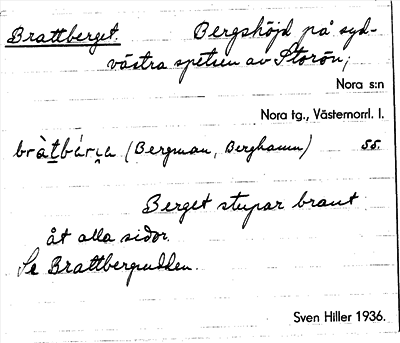 Brattberget. Bergshöjd på syd-
västra spetsen av Storön;
Nora s:n
Nora tg., Västernorrl. l.
(Bergman, Berghamn) 55.
Berget stupar brant
åt alla sidor.
Se Brattbergsudden.
Sven Hiller 1936.